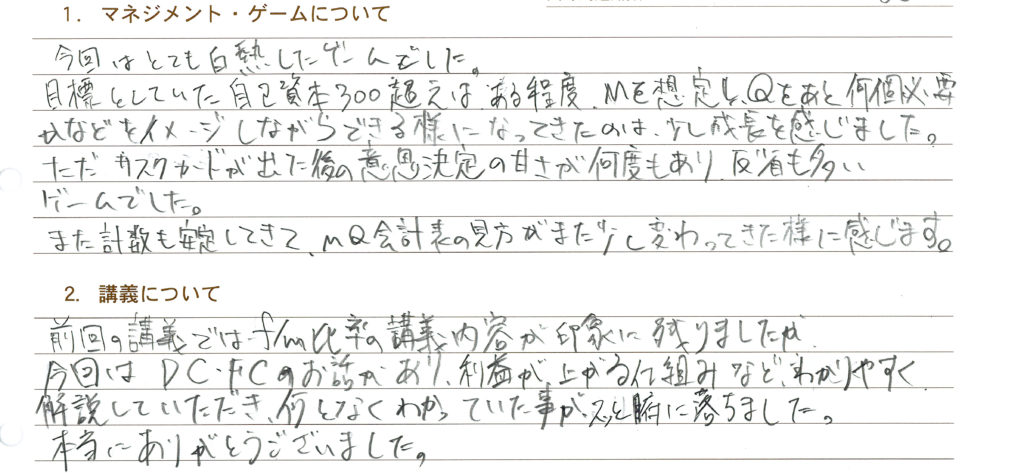 1. マネジメント・ゲームについて
今回はとても白熱したゲームでした。
目標としていた自己資本300超えは、ある程度、MQを想定し、Qをあと何個必要
かなどをイメージしながらできる様になってきたのは、少し成長を感じました。
ただ リスクカードが出た後の意思決定の甘さが何度もあり、反省も多い
ゲームでした。
また計数も安定してきて、MQ会計表の見方がまた少し変わってきた様に感じます。
2. 講義について
前回の講義ではf/m比率の講義内容が印象に残りましたが、
今回は DC・FCのお話があり、利益が上がる仕組みなど、わかりやすく
解説していただき、何となくわかっていた事がスッと腑に落ちました。
本当にありがとうございました。